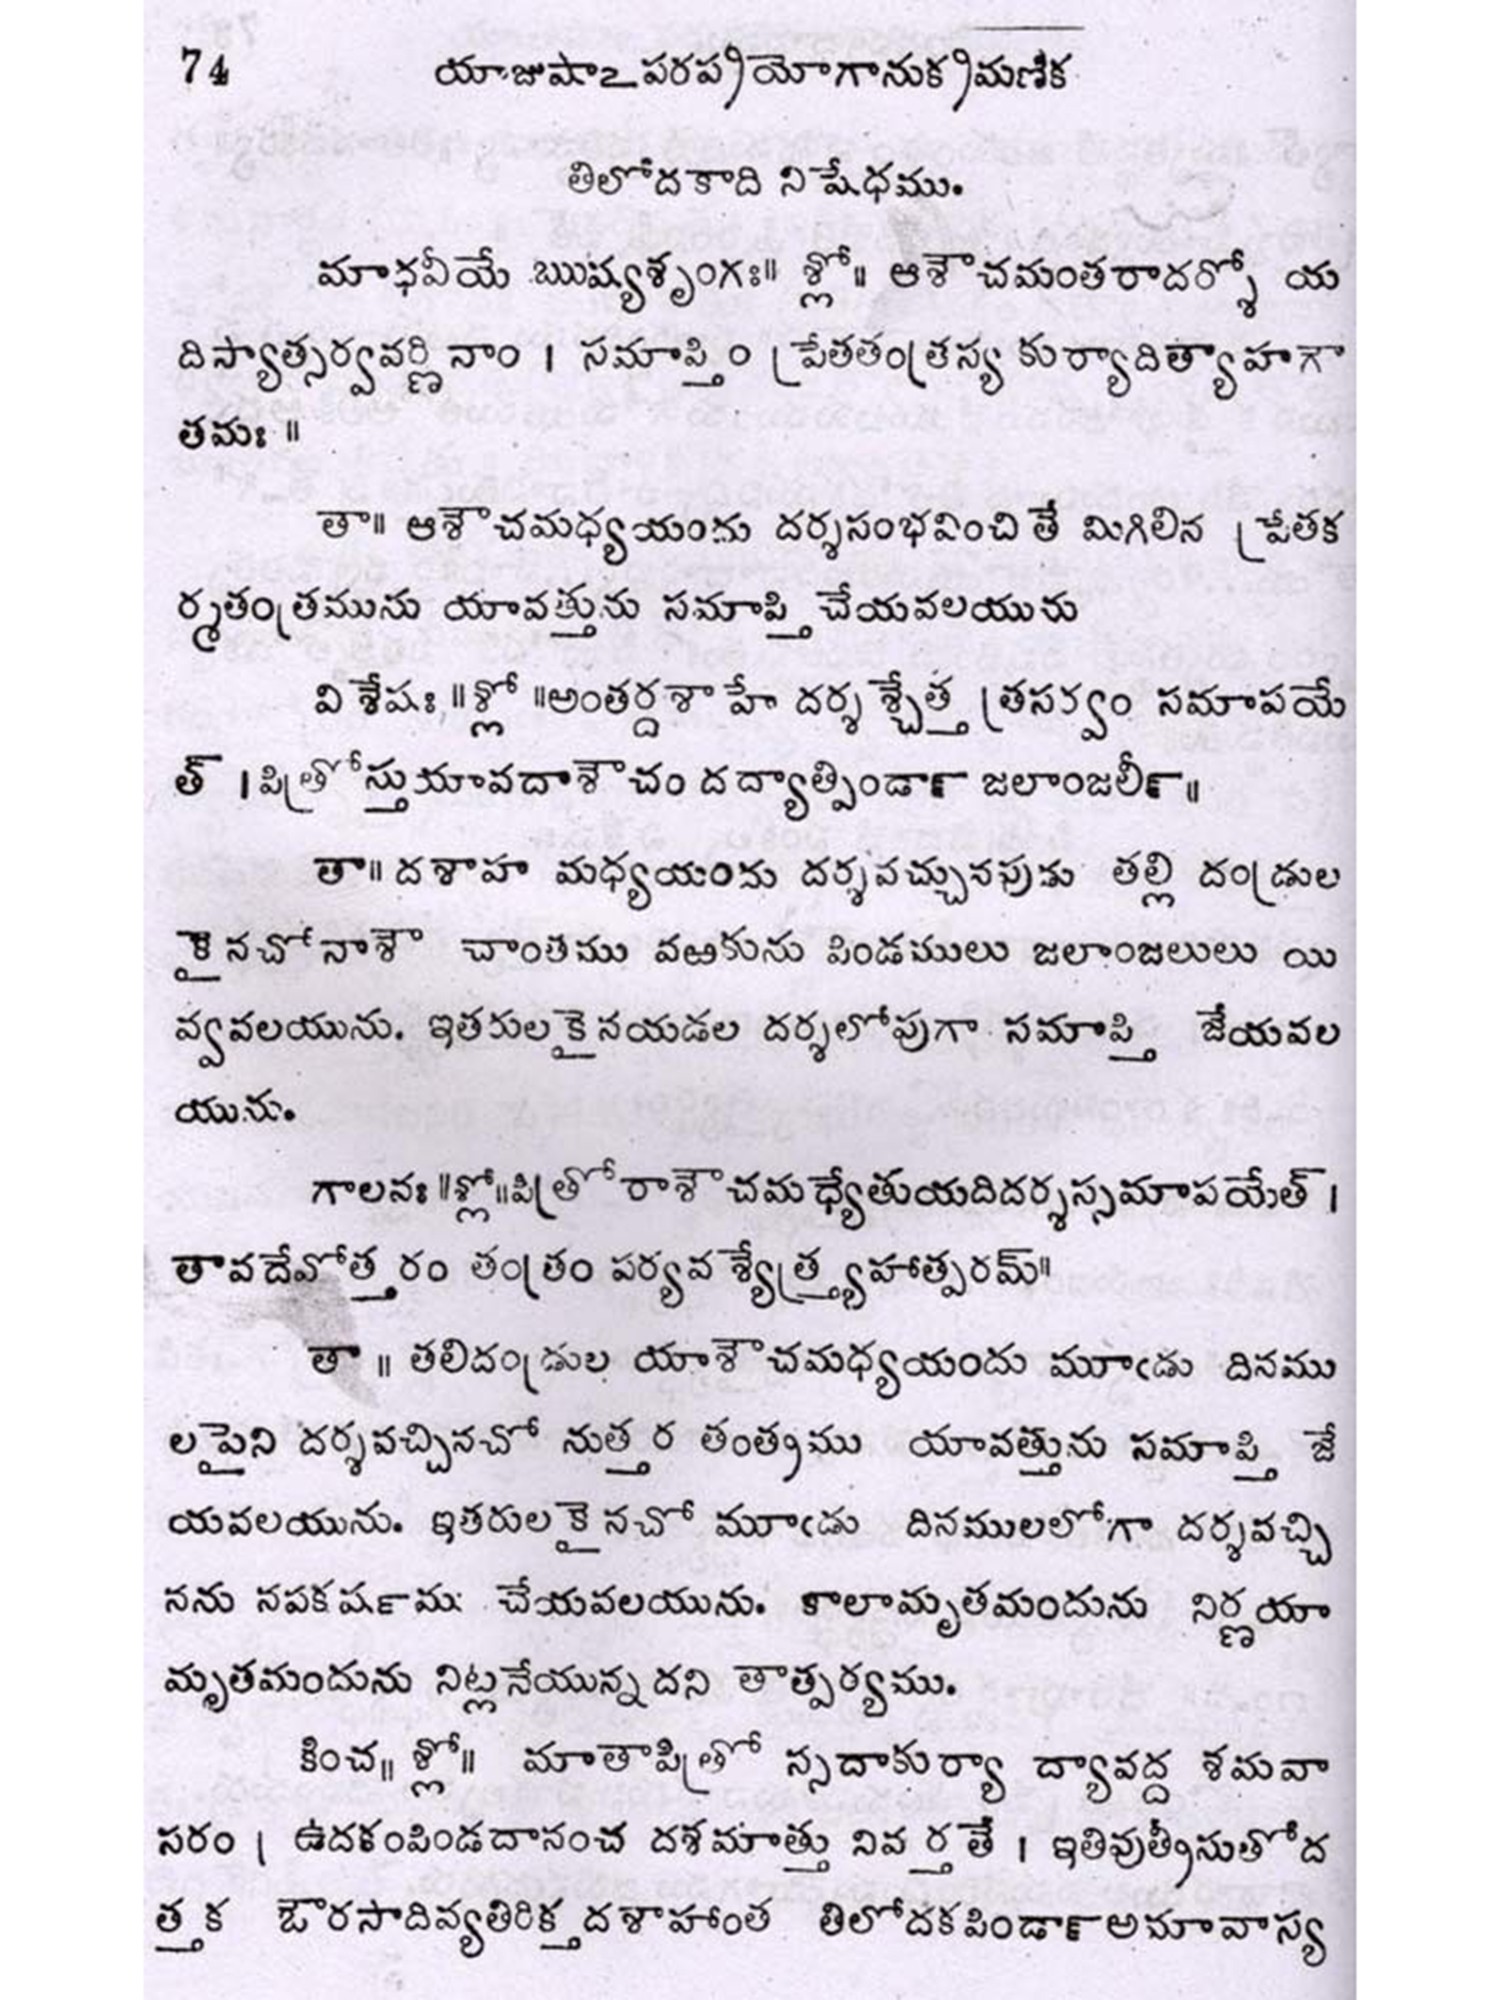 74 యాజుషాఽపరప్రయోగానుక్రమణిక
తిలోదకాది నిషేధము.
మాధవీయే ఋష్యశృంగః॥ శ్లో॥ ఆశౌచమంతరాదర్శో య
దిస్యాత్సర్వవర్ణినాం । సమాప్తిం ప్రేతతంత్రస్య కుర్యాదిత్యాహగౌ
తమః ॥
తా॥ ఆశౌచమధ్యయందు దర్శసంభవించితే మిగిలిన ప్రేతక
ర్మతంత్రమును యావత్తును సమాప్తి చేయవలయును
విశేషః ॥శ్లో ॥అంతర్దశాహే దర్శశ్చేత్తత్రసర్వం సమాపయే
త్ । పిత్రోస్తుయావదాశౌచం దద్యాత్పిండాౝ జలాంజలీౝ॥
తా॥ దశాహ మధ్యయందు దర్శవచ్చునపుడు తల్లి దండ్రుల
కైనచోనాశౌ చాంతము వఱకును పిండములు జలాంజలులు యి
వ్వవలయును. ఇతరులకైనయడల దర్శలోపుగా సమాప్తి జేయవల
యును.
గాలవః ॥శ్లో॥పిత్రోరాశౌచమధ్యేతుయదిదర్శస్సమాపయేత్ ।
తావదేవోత్తరం తంత్రం పర్యవశ్యేత్త్ర్యహాత్పరమ్॥
తా ॥ తలిదండ్రుల యాశౌచమధ్యయందు మూఁడు దినము
లపైని దర్శవచ్చినచో నుత్తర తంత్రము యావత్తును సమాప్తి జే
యవలయును. ఇతరులకైనచో మూఁడు దినములలోగా దర్శవచ్చి
నను నపకర్షము చేయవలయును. కాలామృతమందును నిర్ణయా
మృతమందును నిట్లనేయున్నదని తాత్పర్యము.
కించ॥ శ్లో॥ మాతాపిత్రో స్సదాకుర్యా ద్యావద్ద శమవా
సరం । ఉదకంపిండదానంచ దశమాత్తు నివర్తతే । ఇతివుత్రీసుతోద
త్తక ఔరసాదివ్యతిరిక్తదశాహాంత తిలోదకపిండాౝ అమావాస్య